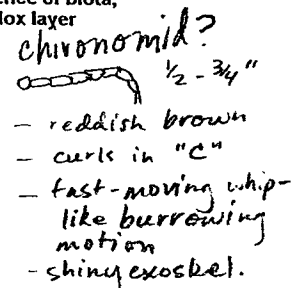 ence of biota,
lox layer
chironomid?
1/2 - 3/4"
- reddish brown
- curls in "C"
- fast-moving whip-
like burrowing
motion
- shiny exoskel.